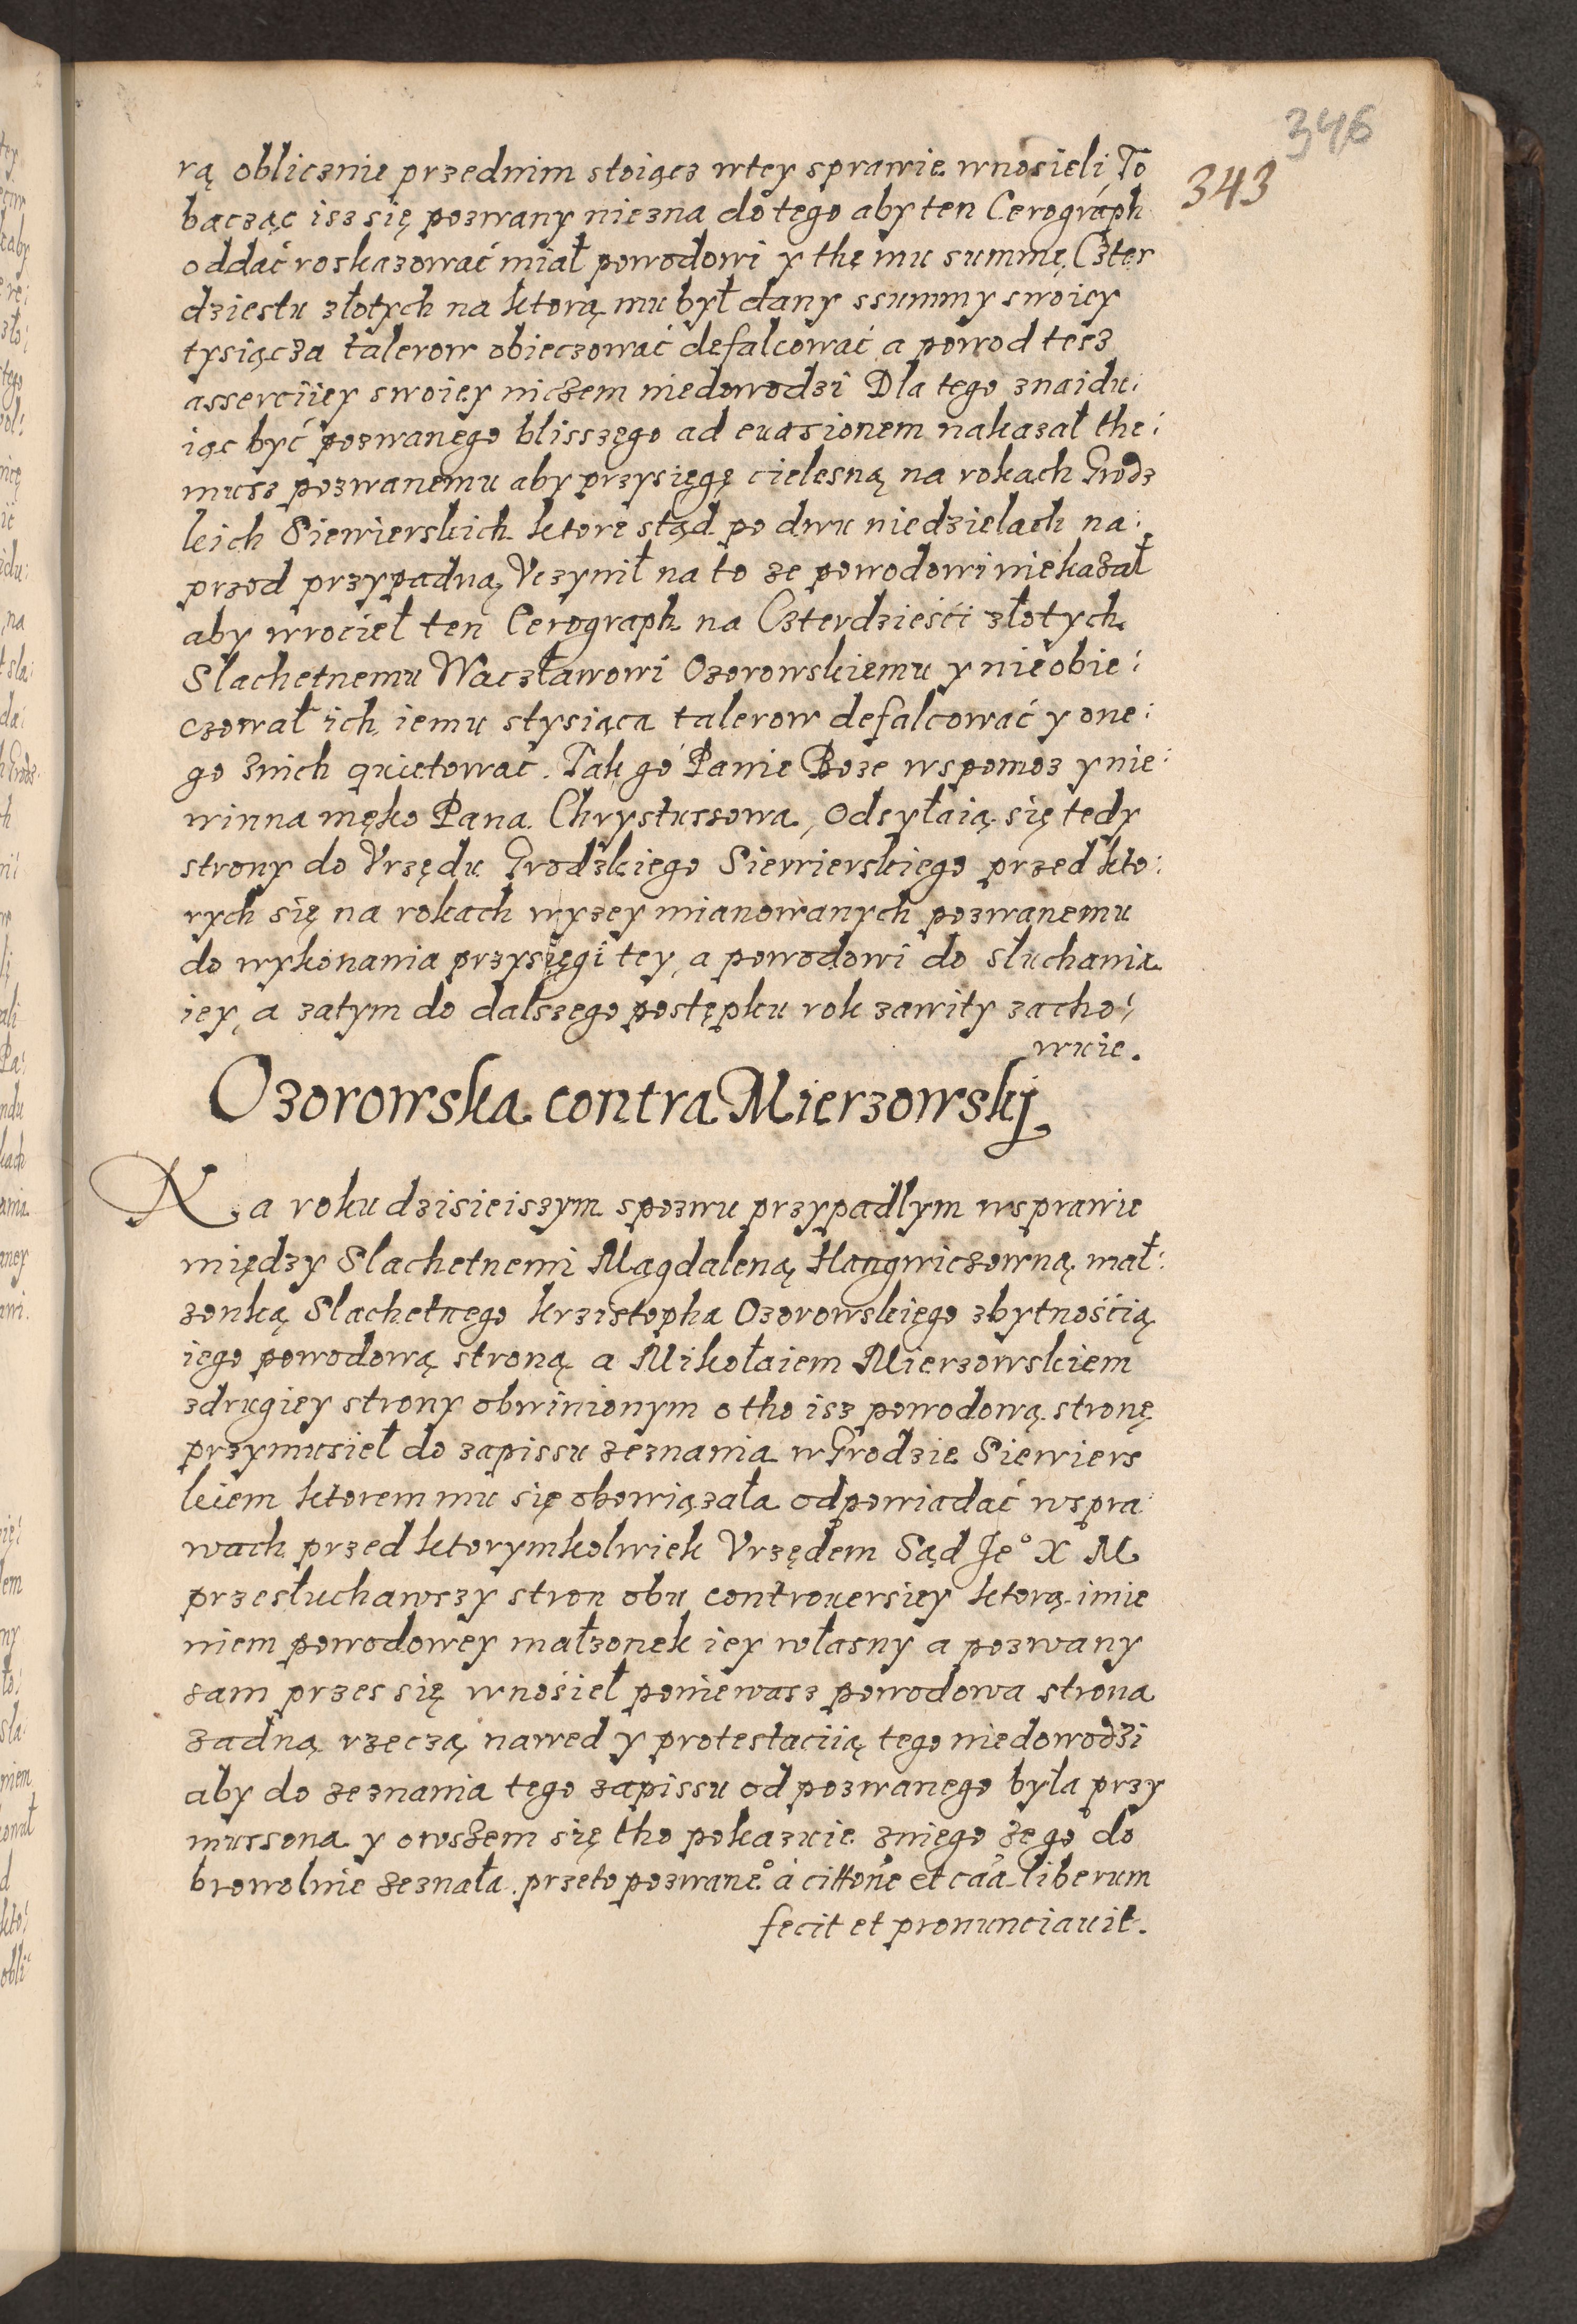 346
343
rą oblicznie przednim stoiącz wtey sprawie wnosieli, To
bacząc isz się pozwany niezna do tego aby ten Cerograph
oddać roskazować miał powodowi y thę mu summę Czter
dziestu złotych na ktorą mu był dany ssummy swoiey
tysiącza talerow obieczować defalcować a powod tesz
asserciiey swoiey niczem niedowodzi Dla tego znaidu:
iąc być pozwanego blisszego ad euasionem nakazał the:
musz pozwanemu aby przysięgę cielesną na rokach Grodz
kich Siewierskich ktore stąd po dwu niedzielach na:
przod przypadną Vczynił na to ze powodowi niekazał
aby wrocieł ten Cerograph na Czterdzieści złotych
Slachetnemu Wacżławowi Ozorowskiemu y nieobie:
czował ich iemu stysiąca talerow defalcować y one:
go znich quietować. Tak go Panie Boze wspomoz y nie:
winna męko Pana Chrystussowa, Odsyłaią się tedy
strony do Vrzędu Grodzkiego Siewierskiego przed kto:
rych się na rokach wyzey mianowanych pozwanemu
do wykonania przysięgi tey, a powodowi do słuchania
iey, a zatym do dalszego postępku rok zawity zacho:
wuie.
Ozorowska contra Mierzowskj
Na roku dzisieiszym spozwu przypadlym wsprawie
między Slachetnemi Magdaleną Haugwiczowną mał:
zonką Slachetnego krzistopha Ozorowskiego zbytnością
iego powodową stroną a Mikołaiem Mierzowskiem
zdrugiey strony obwinionym o tho isz powodową stronę
przymusieł do zapissu zeznania wGrodzie Siewiers
kiem ktorem mu się obowiązała odpowiadać wspra:
wach przed ktorymkolwiek Vrzędem Sąd Jeº X M
przesłuchawszy stron obu controuersiey ktorą imie
niem powodowey małzonek iey własny a pozwany
sam przes się wnosieł poniewasz powodowa strona
zadną rzeczą nawed y protestaciią tego niedowodzi
aby do zeznania tego zapissu od pozwanego była przy
mussona y owszem się tho pokazuie zniego ze go do
browolnie zeznała. przeto pozwaneº à cittõne et cãa liberum
fecit et pronunciauit.